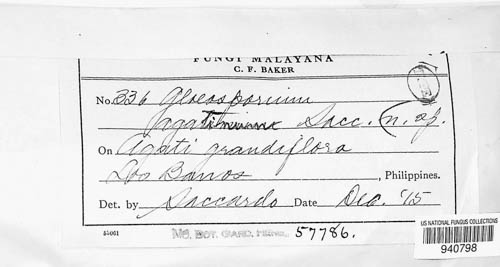 FUNGI MALAYANA
C. F. BAKER
No. 336 Gloeosporium
Sacc. (n. sp.
On Agati grandiflora
Los Banos, Philippines.
Det. by Saccardo Date Dec. '15
51061
MO. BOT. GARD. HERB. 57786.
US NATIONAL FUNGUS COLLECTIONS
940798